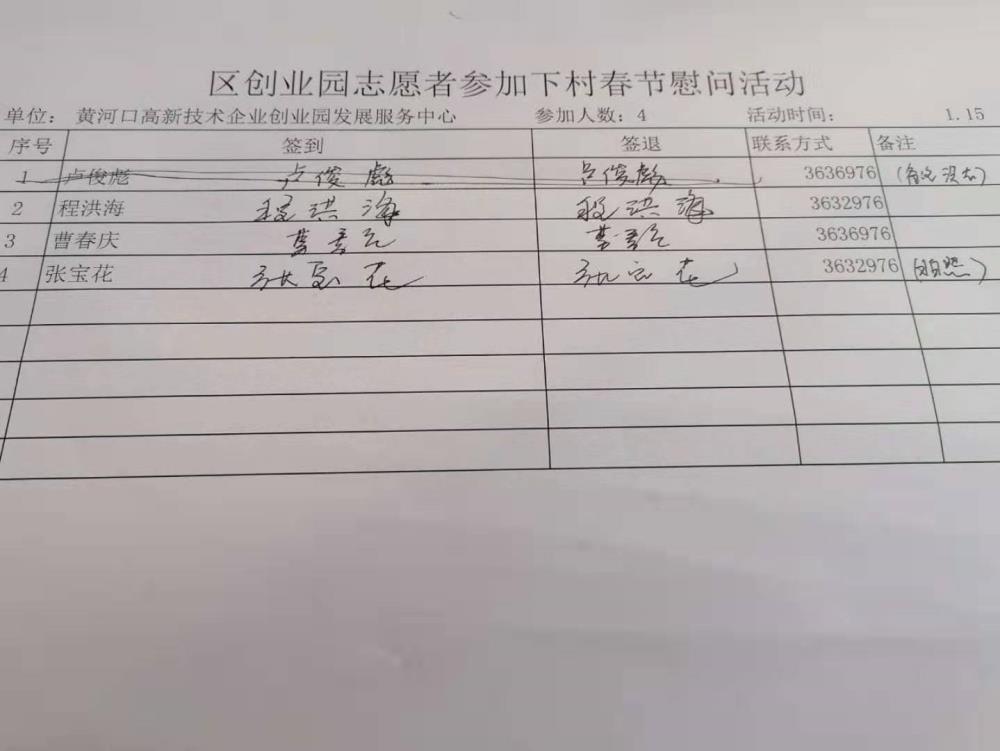 区创业园志愿者参加下村春节慰问活动
单位： 黄河口高新技术企业创业园发展服务中心 参加人数：4 活动时间： 1.15
序号 签到 签退 联系方式 备注
1 卢俊彪 卢俊彪 吕俊彪 3636976
2 程洪海 程洪海 程洪海 3632976
3 曹春庆 3636976
4 张宝花 张宝花 张宝花 3632976